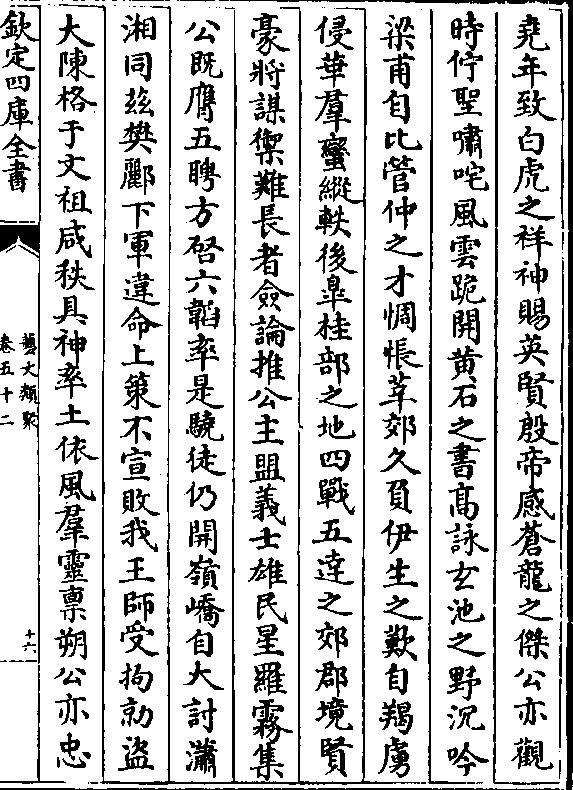 堯年致白虎之祥神賜英賢殷帝感蒼龍之傑公亦觀
時佇聖嘯咤風雲跪開黄石之書高詠玄池之野沉吟
梁甫自比管仲之才惆悵莘郊久負伊生之歎自羯虜
侵華羣蠻縱軼後臯桂部之地四戰五達之郊郡境賢
豪將謀禦難長者僉論推公主盟義士雄民星羅霧集
公既膺五聘方啓六韜率是驍徒仍開嶺嶠自大討瀟
湘同兹樊酈下軍違命上策不宣敗我王師受拘勍盜
大陳格于文祖咸秩具神率土依風羣靈禀朔公亦忠
欽定四庫全書
藝文類聚
卷五十二
十六